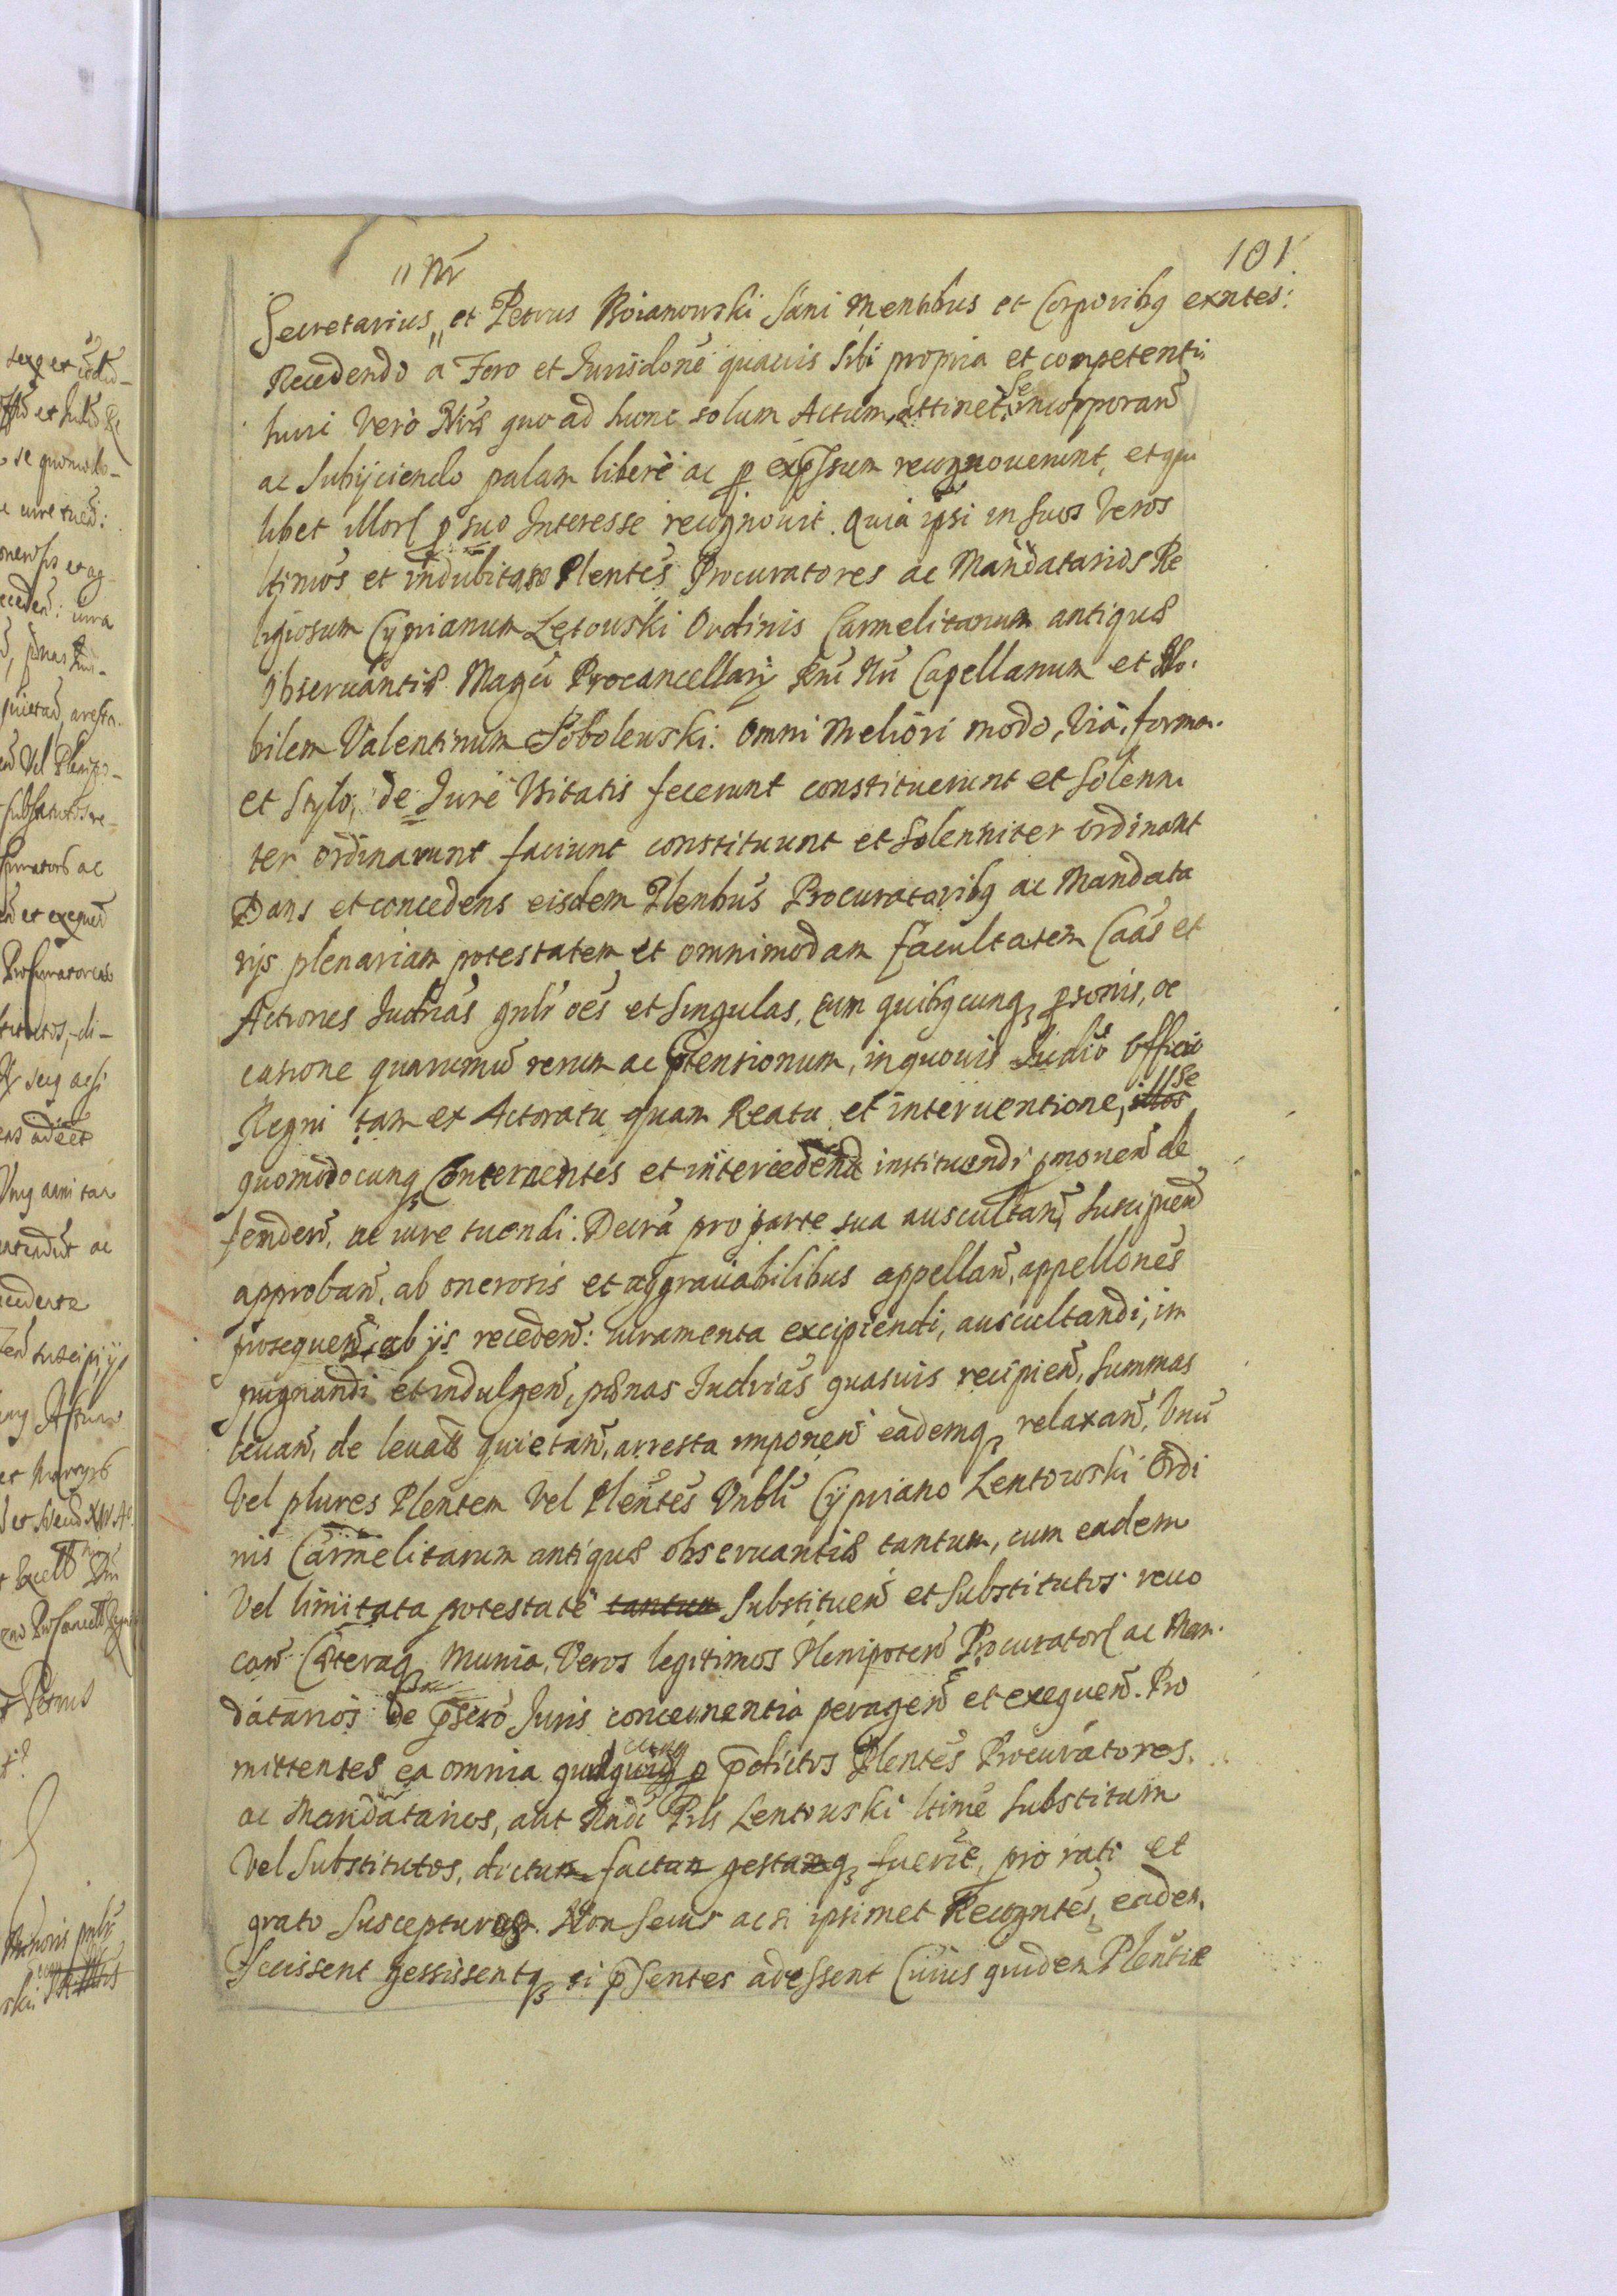 101.
"Nr
Secretarius " et Petrus Boianowski sani mentibus et Corporibq exntes:
Recedendo a Foro et Jurisdone quauis sibi propria et competenti
Iuri vero quo ad hunc solum Actum attinet, se incorporan
ac subijciendo palam libere ac p expssum recognouerunt, et qui
libet illor p suo Interesse recognouit. Quia ipsi in suos veros
ltimos et indubitatos Plentes Procuratores ac Mandatarios Re
ligiosum Cyprianum Lętowski Ordinis Carmelitarum antiquæ
obseruantiæ Magci Procancellarij Rni Capellanum et No:
bilem Valentinum Sobolewski. Omni meliori modo, via, forma.
et stylo, de Jure Usitatis fecerunt constituerunt et solenni
ter ordinarunt faciunt constituunt et solenniter ordinant
Dans et concedens eisdem Plentibus Procuratoribq ac Mandata
rijs plenariam potestatem et omnimodam facultatem Caas et
Actiones Judrias gnlr oes et singulas, cum quibqcunq psonis, oc
casione quarumuis rerum ac ptensionum, in quouis Iudio Officio
Regni tam ex Actoratu quam Reatu et interuentione, illos se
quomodocunq Concernentes et intercedend instituendi pmouen de
fenden, ac iure tuendi: Decra pro parte sua auscultan, suscipien
approban, ab onerosis et aggrauabilibus appellan, appellones
prosequen, ab ijs receden: iuramenta excipiendi, auscultandi, im
pugnandi et indulgen, pænas Judrias quasuis recipien, summas
leuan, de leuatis quietan, arresta imponen eademq relaxan, Unu
vel plures Plentem vel Plentes Cypriano Lentowski Ordi
nis Carmelitarum antiquæ obseruantiæ tantum, cum eadem
vel limitata potestate tantum substituen et substitutos reuo
can Cæteraq munia, veros legitimos Plenipoten Procurator ac Man.
datarios de Juris concernentia peragen et exequen. Pro
mittentes ea omnia quæcunq p pdictos Plentes Procuratores.
ac Mandatarios, aut Lentowski ltime substitum
vel substitutos, dictum factum gestumq fuerit, pro rati et
grato suscepturos. Non secus ac si ipsimet Recogntes, eadem
fecissent gessissentq si psentes adessent Cuius quidem Plentiæ